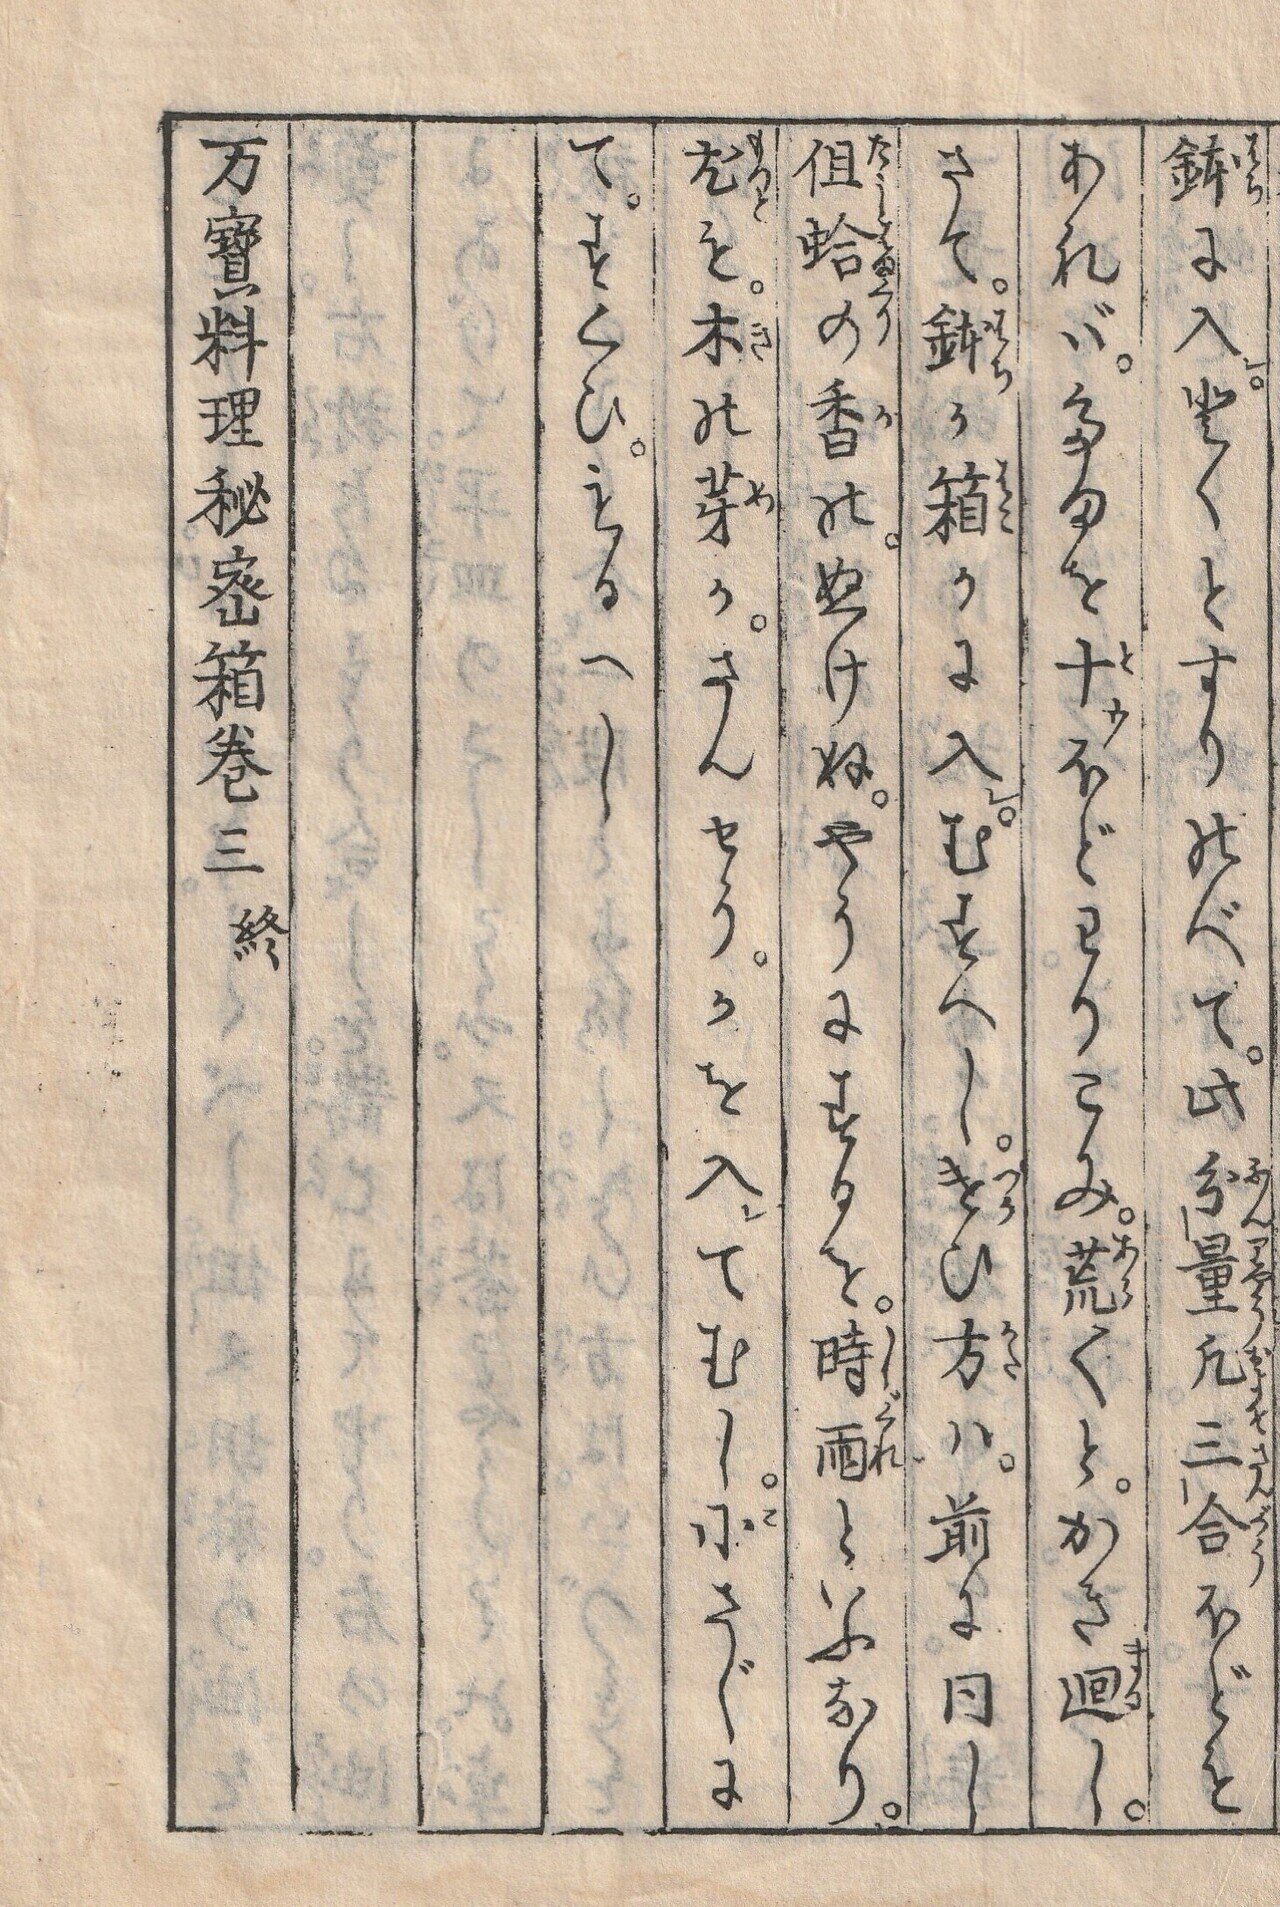 鉢に入レ。とくとすりのべて。此分量凡三合ほども
あれバ。たまを十ヲほどわりこみ。荒くと。かき廻し。
さて。鉢か箱かに入レ。むすへし。遣ひ方ハ。前に同し
但蛤の香の。ぬけぬ。やうにするを。時雨といふなり。
尤も。木の芽か。さんせう。かを入レてむし。小さじに
て。すくひ。もるへし
万寳料理秘密箱巻三 終